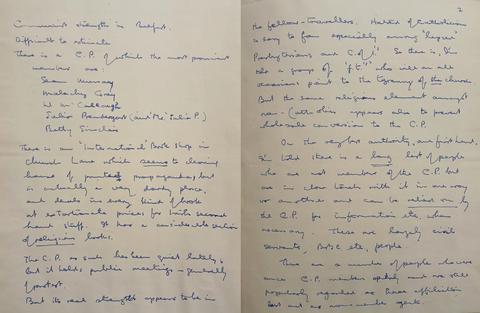 Communist strengths in Belfast.
Difficult to estimate
There is a C.P. of which the most prominent
members are
Sean Murray
Malachy Gray
W. McCullough
Julia Prendergast (ain't Me Julia P.)
Betty Sinclair
There is an 'International' Book Shop in
Church Lane which seems to be a
of propaganda, but
is actually a very dowdy place,
and deals in every kind of book
at extortionate prices for its second
hand stuff. It has a considerable section
of religious books.
The C.P. as such has been quiet lately,
but it holds public meetings - generally
of protest.
But its real strength appears to be in
2
the fellow-travellers. Hatred of Catholicism
is easy to fan especially among "
Presbyterians and C. of I." So there is, I'm
told a group of "f.t."s who will on all
occasions point to the tyranny of the church.
But the same religious element amongst
non-Catholics appears also to prevent
wholesale conversion to the C.P.
On the very best authority, on first hand,
I'm told there is a long list of people
who are not members of the C.P. but
are in close touch with it in one way
or another and can be relied on by
the C.P. for information etc. when
necessary. These are largely civil
servants, B.B.C. etc. people.
There are a number of people who were
once C.P. members openly and are still
popularly regarded as those affiliations
but act as non-member agents.